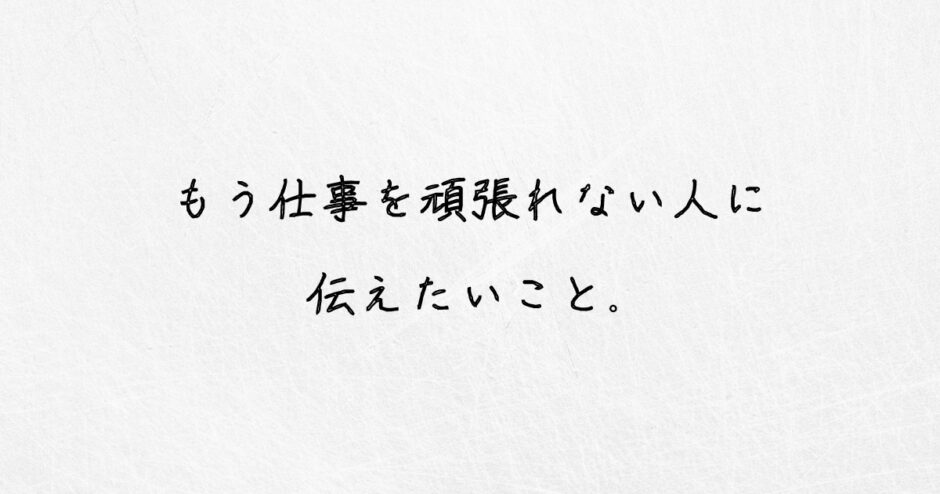 もう仕事を頑張れない人に
伝えたいこと。